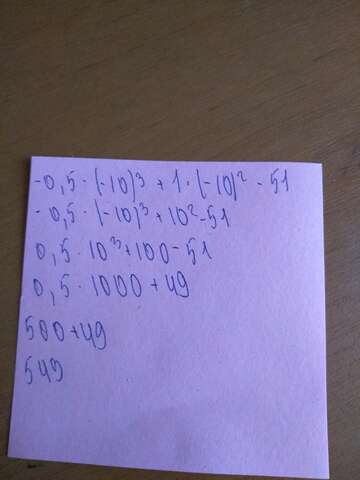 -0,5 · (-10)³ + 1 · (-10)² - 51
-0,5 · (-10)³ + 10² - 51
0,5 · 10³ + 100 - 51
0,5 · 1000 + 49
500 + 49
549